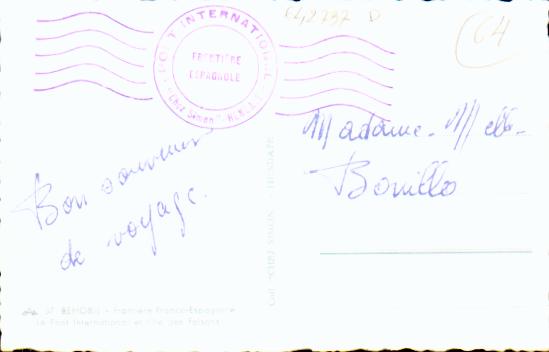 64,2737 D
64
PONT INTERNATIONAL
FRONTIÈRE
ESPAGNOLE
"Chez Simon"
Bon souvenir
de voyage.
Madame - Melle -
Bouillo
"CHEZ SIMON"
57 BEHOBIE - Frontière Franco-Espagnole
Le Pont International et l'Ile des Faisans